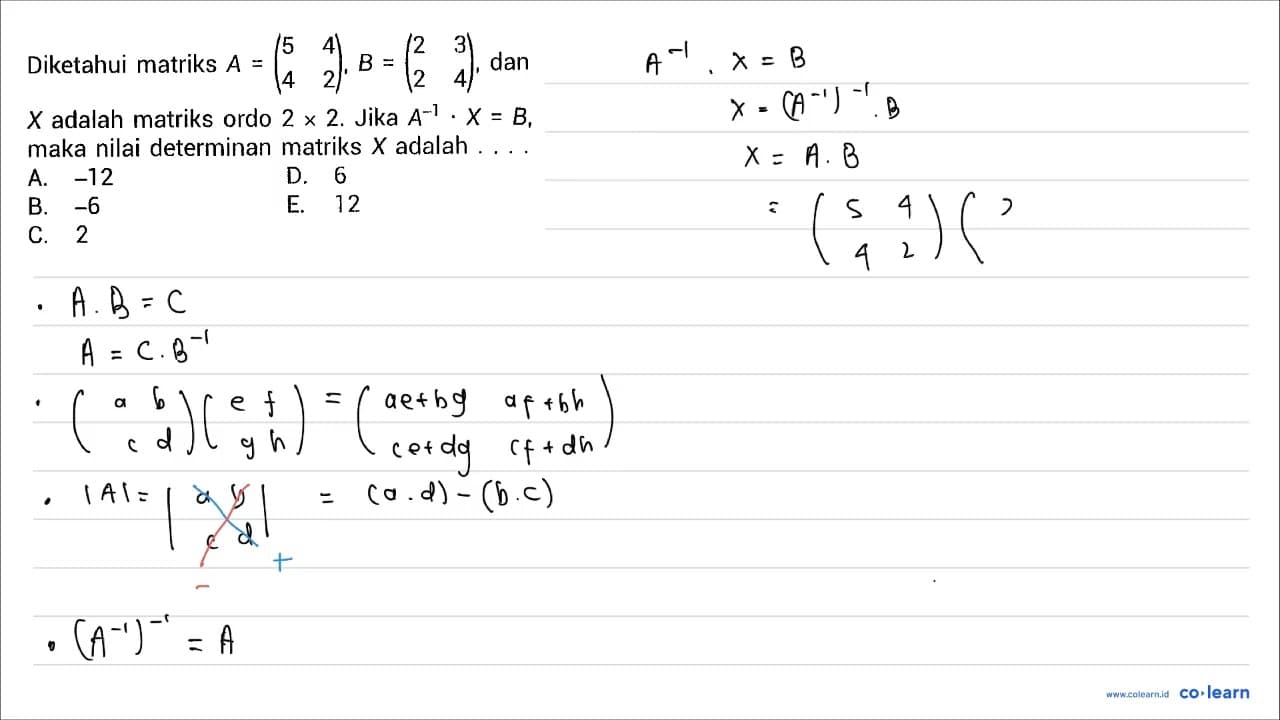 Diketahui matriks A = (5 4 4 2), B = (2 3 2 4), dan
X adalah matriks ordo 2 × 2. Jika A⁻¹ · X = B,
maka nilai determinan matriks X adalah . . . .
A. –12 D. 6
B. –6 E. 12
C. 2
A⁻¹ . X = B
X = (A⁻¹)⁻¹ . B
X = A . B
= (5 4 4 2)(2
• A . B = C
A = C . B⁻¹
• (a b c d)(e f g h) = (ae+bg af+bh ce+dg cf+dh)
• |A| = |a b c d| = (a.d) – (b.c)
– +
• (A⁻¹)⁻¹ = A
www.colearn.id co·learn